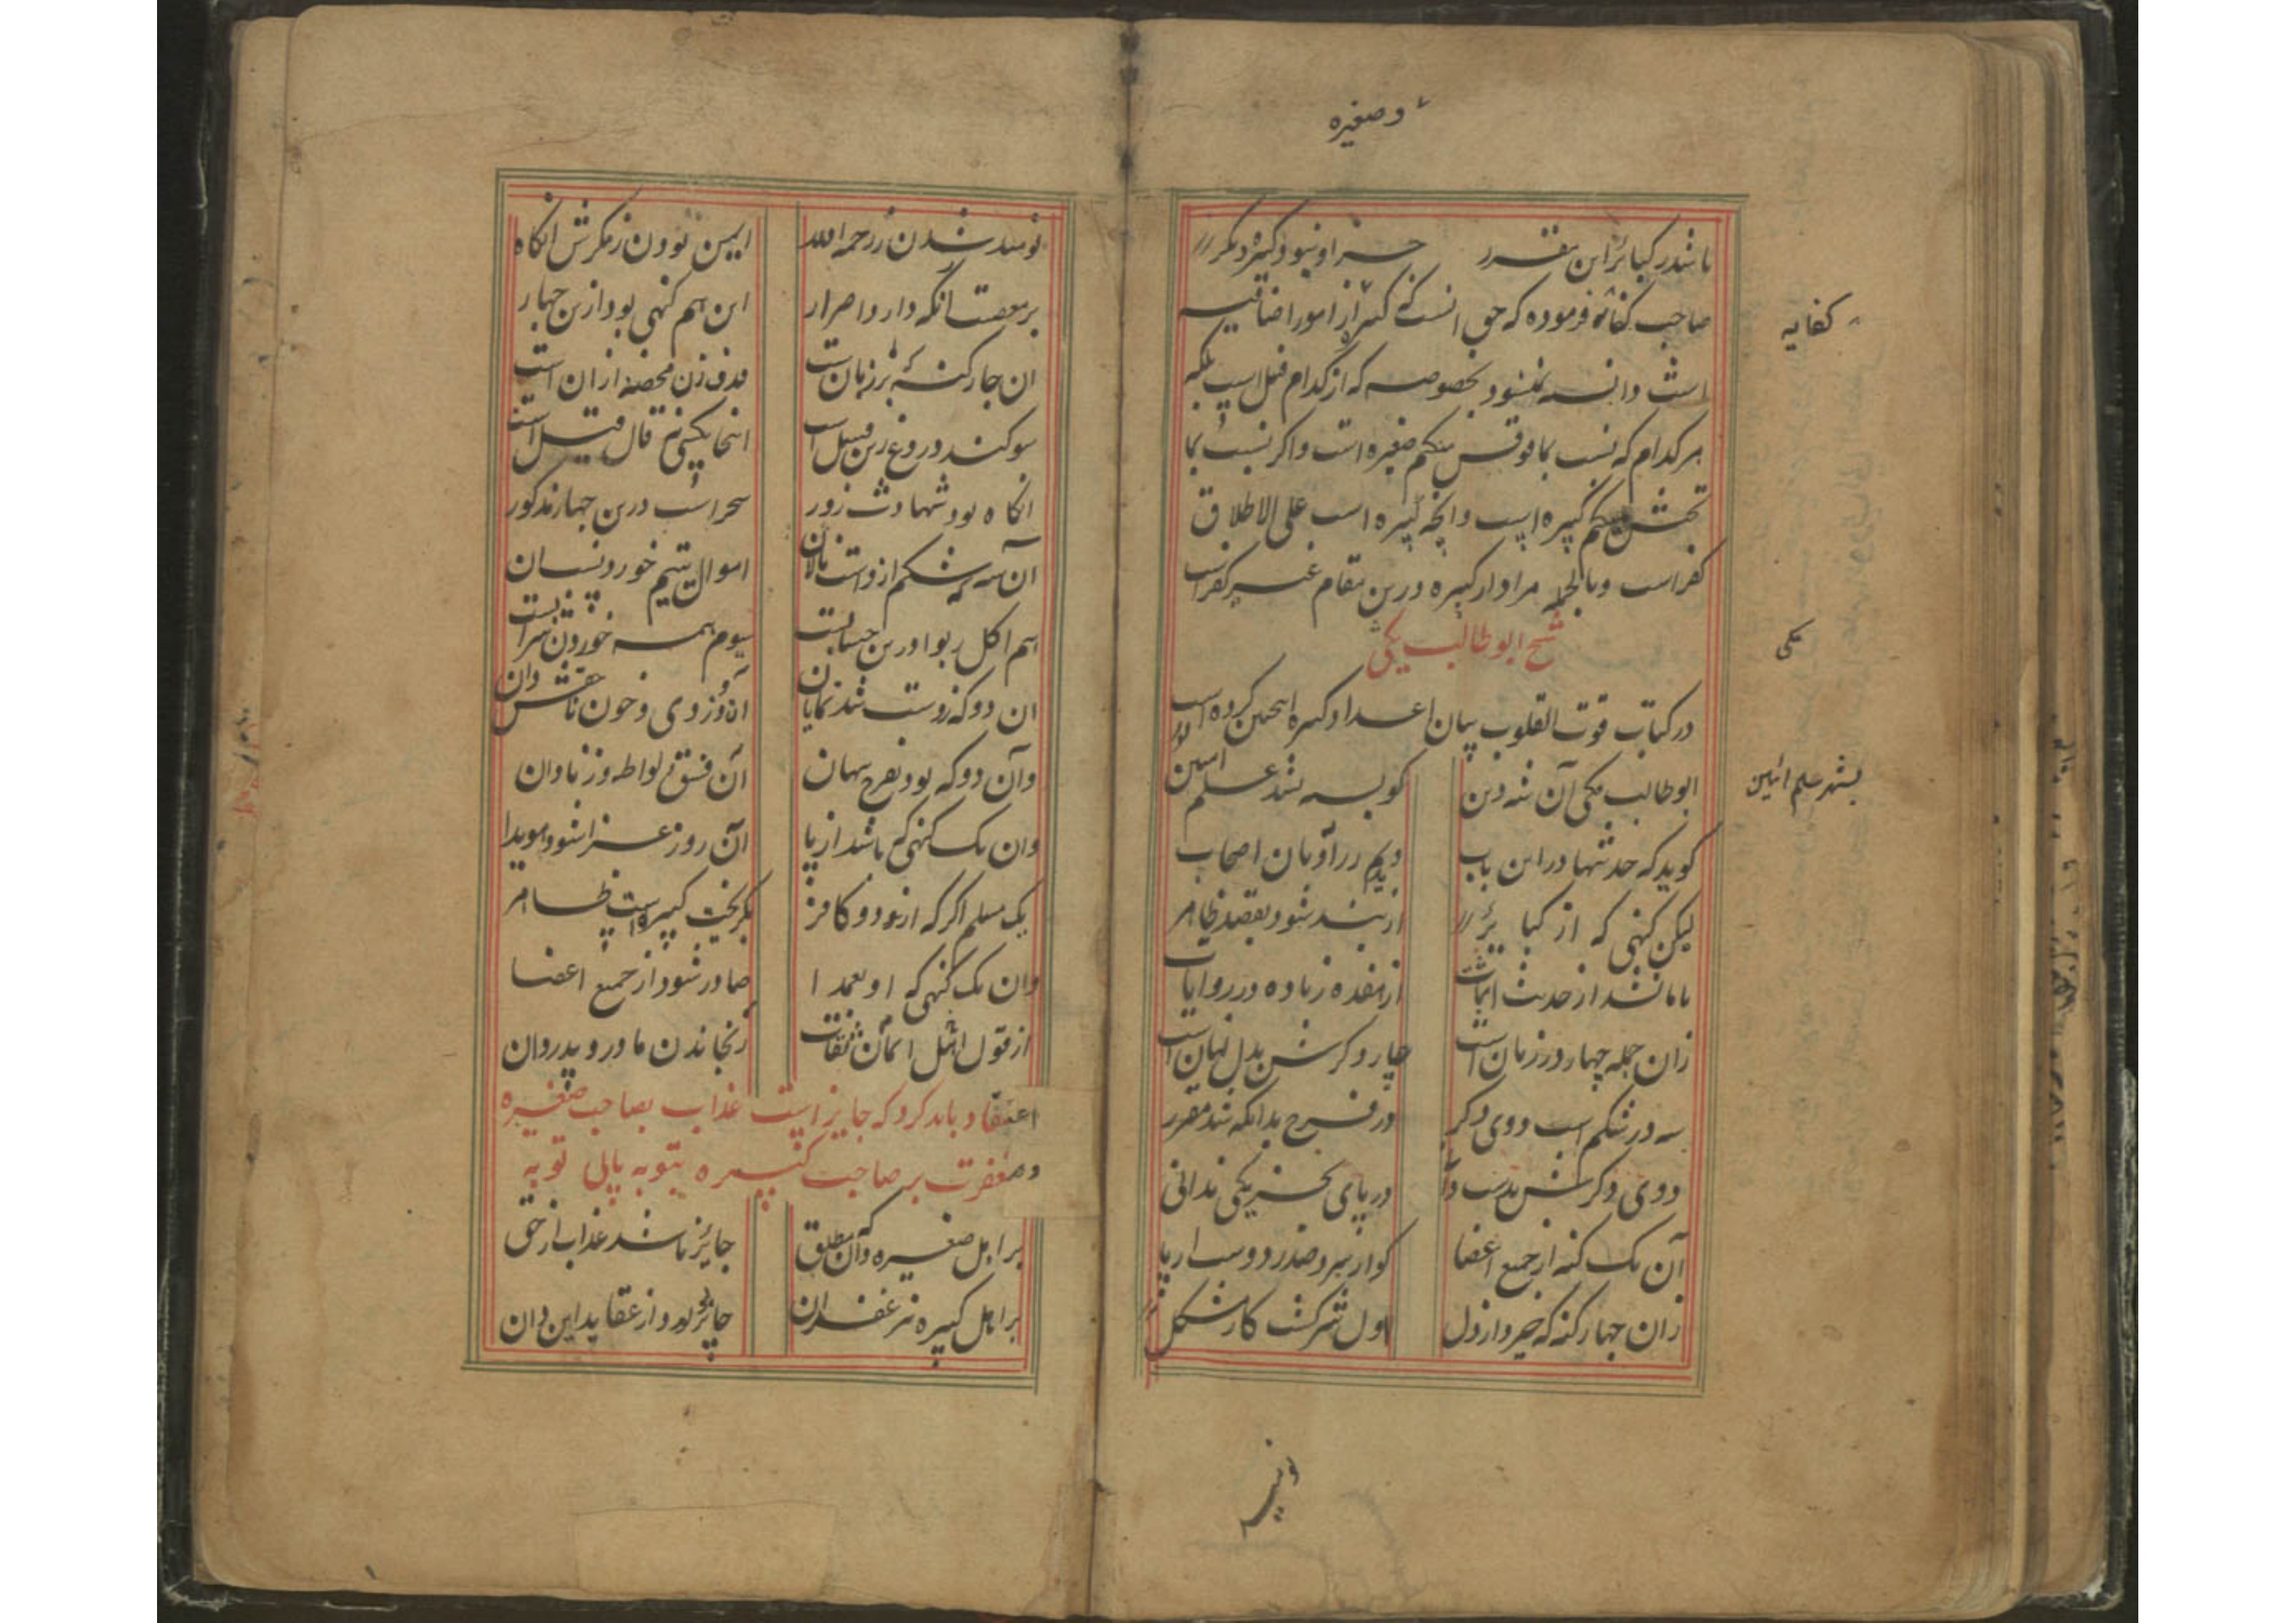 و صغیره
باشد ز کبائر این مقرر جز او نبود کبیره دیگر
صاحب کفایه فرموده که حق انست که کبیره از امور اضافیه
است دانسته نمیشود بخصوصه که از کدام قبل است بلکه
هر کدام که نسبت بمافوقش میکنم صغیره است و اگر نسبت بما
تحتش میکنم کبیره است و انچه کبیره است علی الاطلاق
کفر است و بالجمله مراد از کبیره درین مقام غیر کفر است
شیخ ابو طالب مکی
در کتاب قوت القلوب بیان اعداد کبیره اینچنین کرده است
ابو طالب مکی آن شه دین کو بسه بشد علم
گوید که حدیثها در این باب دیدم ز راویان اصحاب
لیکن گنهی که از کبایر
از هفده زیاده در روایات
زان جمله چهار در زبان است چار دگرش بدل نهان است
سه در شکم است و دوی دگر در فرج بدانکه شد مقرر
دوی دگرش بدست در پای بجز یکی ندانی
آن یک گنه از جمیع اعضا کو از سر و صدر و دست و از پا
زان چهار گنه که خیزد از دل اول شرکست کار مشکل
کفایه
مکی
بشهر علم ائین
نومید
نومید شدن ز رحمة الله ایمن بودن ز مکرش انگاه
بر معصیت انکه دارد اصرار این هم گنهی بود ازین چهار
ان چار گنه که بر زبان است قذف زن محصنه ازان است
سوگند دروغ زین قبیل است اینجا یکی نیز قال و قیل است
انگاه بود شهادت زور سحر است درین چهار مذکور
آن سه که شکم ازوست نالان اموال یتیم خورد نیسان
هم اکل ربوا درین حسابست سیوم همه خوردن شرابست
ان دو که ز دست شد نمایان آن دزدی و خون ناحقش دان
وآن دو که بود بفرج پنهان آن فسق لواطه و زنا دان
وان یک گنهی که باشد از پا آن روز غزا شود هویدا
یک مسلم اگر که از دو کافر بگریخت کبیره است ظاهر
وان یک گنهی که او بعمدا صادر شود از جمیع اعضا
از قول اهل ایمان رنجاندن مادر و پدر دان
اعتقاد باید کرد که جایز است عذاب بصاحب صغیره
و مغفرت بر صاحب کبیره بتوبه یا بی توبه
بر اهل صغیره وآن مطلق جایز باشد عذاب از حق
بر اهل کبیره نیز غفران جایز بود از عقاید این دان